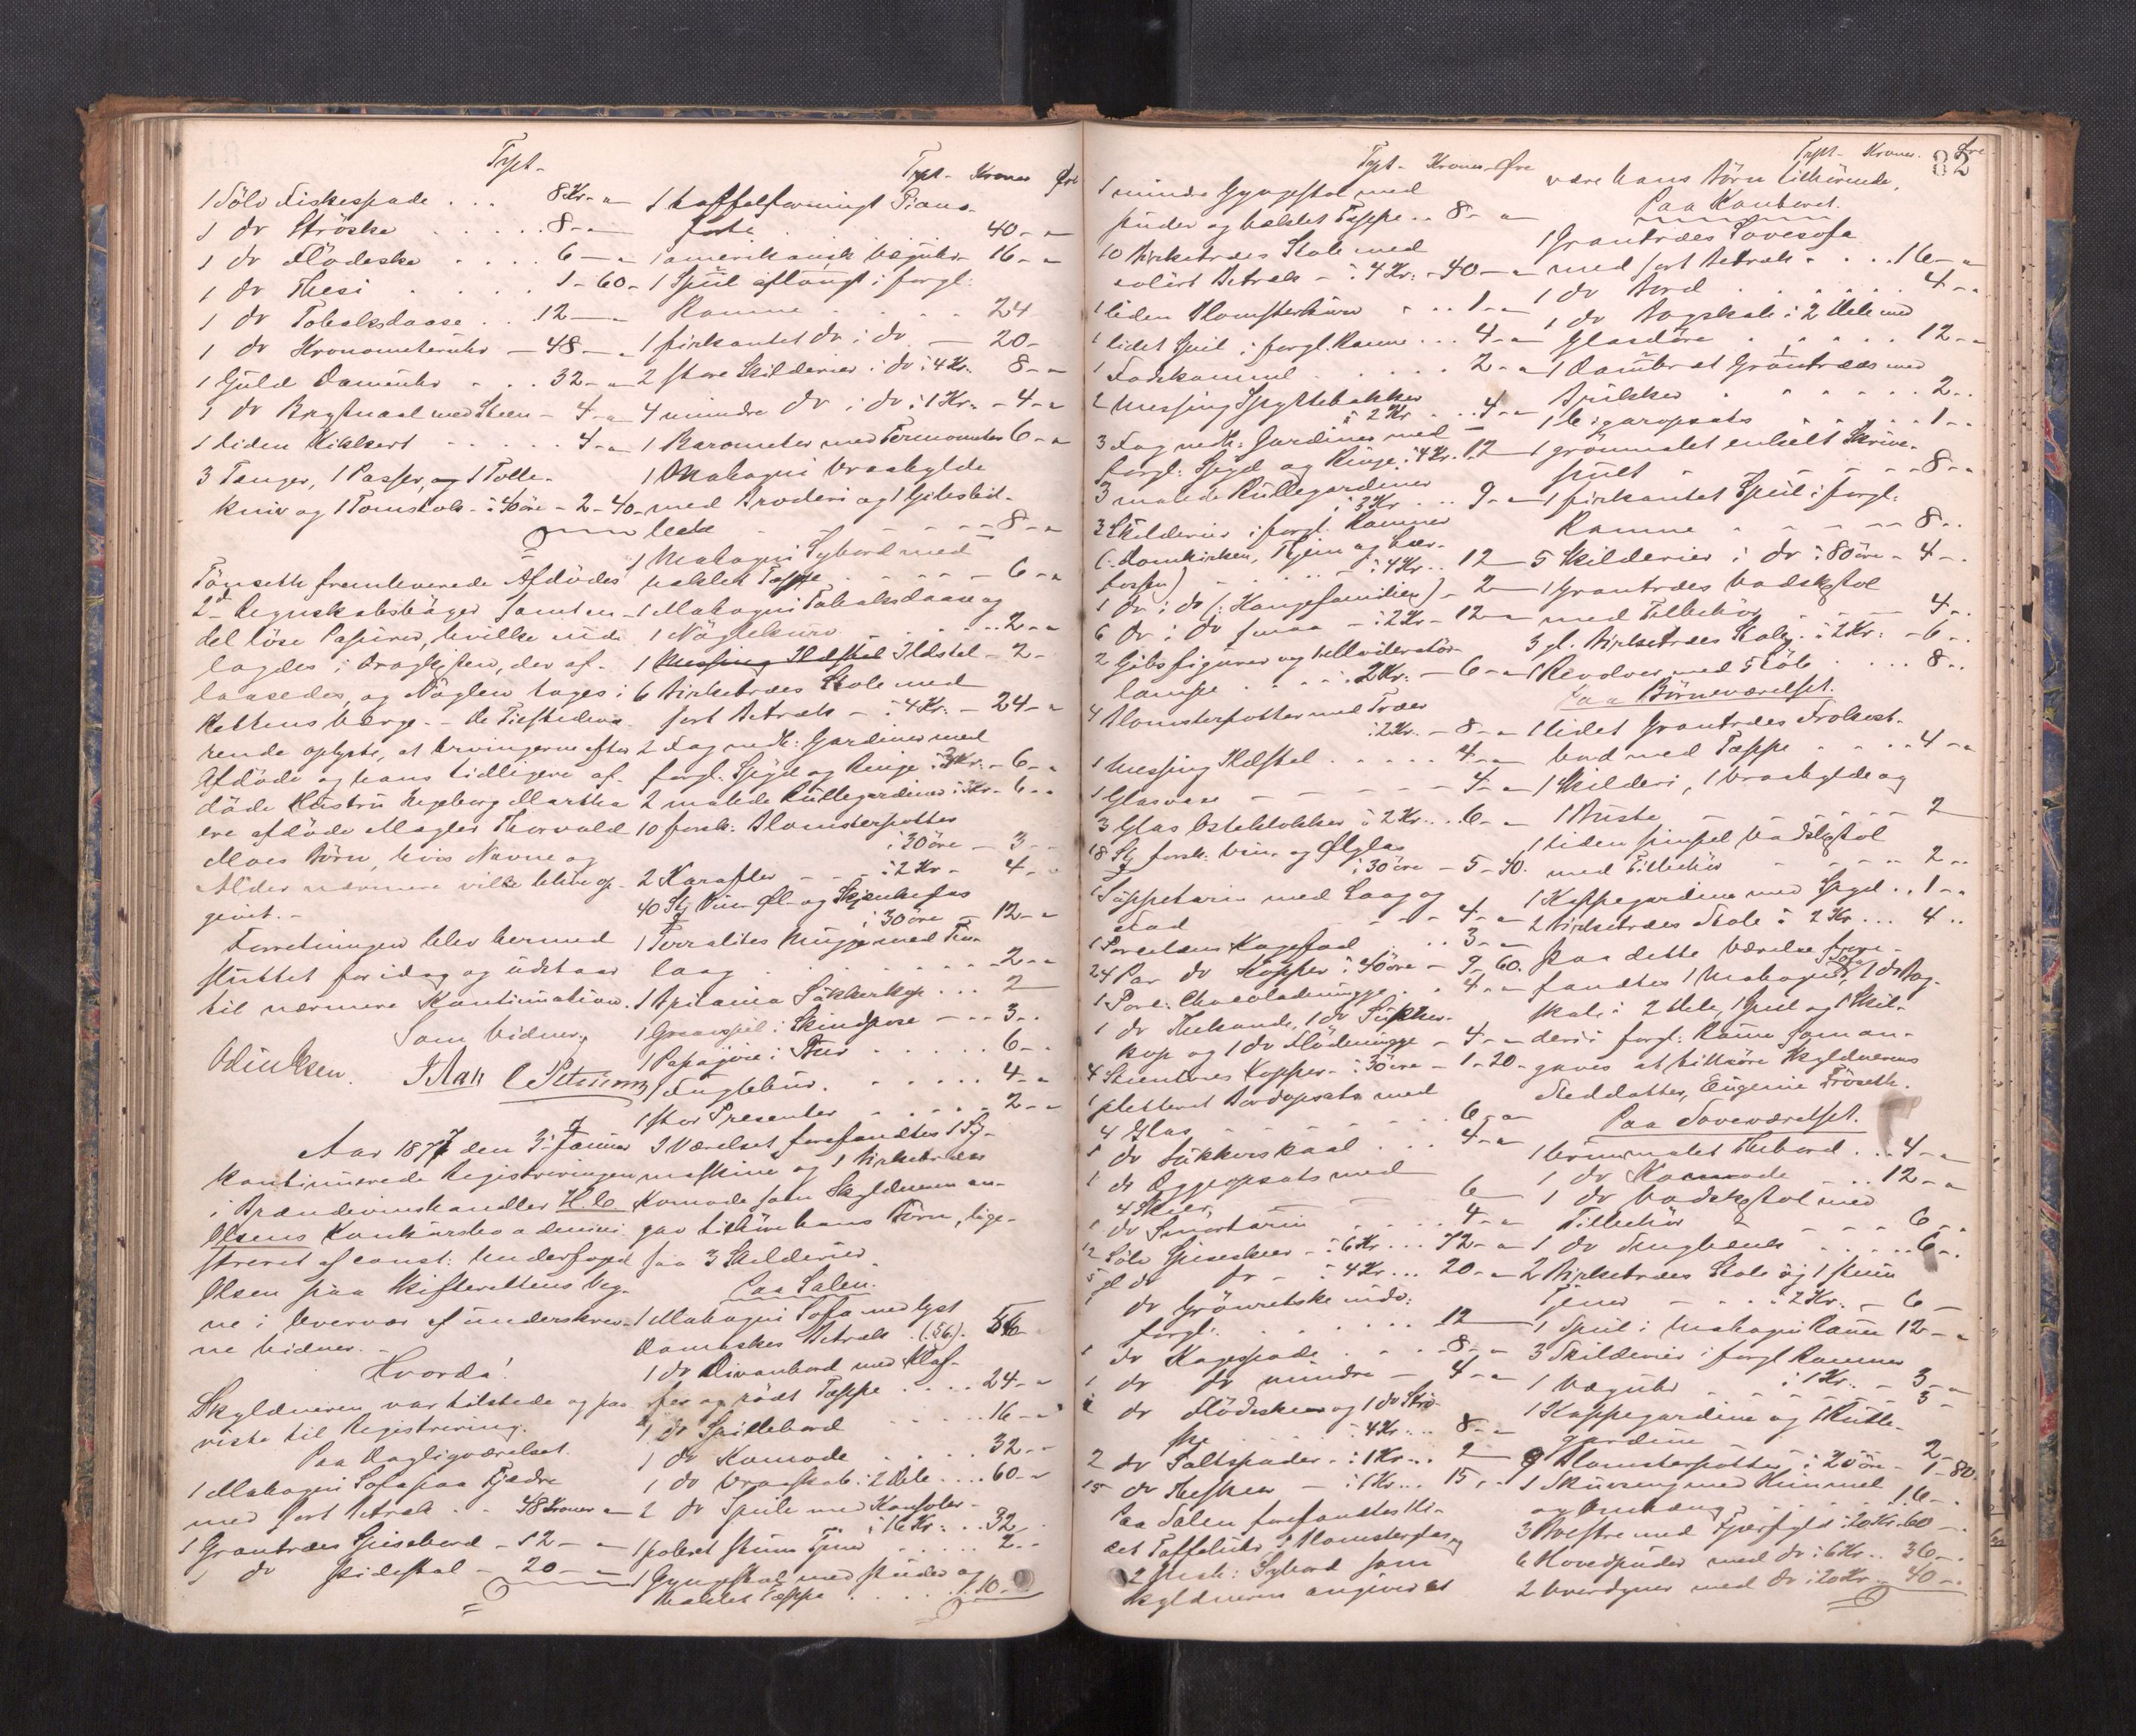 Txpt-
1 Sölv Fiskespade . . . 8 Kr. - "
1 do Ströske . . . . . 8 - "
1 do Flödeske . . . . 6 - "
1 do Thesi . . . . 1 - 60 -
1 do Tobaksdaase . . 12 - "
1 do Kronometeruhr - 48 - "
1 Guld Dameuhr - . . 32 - "
1 do Brystnaal med Steen - 4 - "
1 liden Kikkert - . . . . 4 - "
3 Tanger, 1 Passer, og 1 Tolle-
kniv og 1 Tomstok - à 40 öre - 2 - 40 -
Tönseth fremleverede Afdödes
2de Regnskabsböger samt en
del löse Papirer, hvilke ned-
lagdes i Dragkisten, der af-
laasedes, og Nöglen toges i
Rettens Værge. - De Tilstedevæ-
rende oplyste, at Arvingerne efter
Afdöde og hans tidligere af-
döde Hustru Ingeborg Martha
ere afdöde Mægler Thorvald
Moes Börn, hvis Navne og
Alder nærmere ville blive op-
givet. -
Forretningen blev hermed
sluttet for idag og udstaar
til nærmere Kontinuation.
Som Vidner:
Aar 1877 den 3die Januar
kontinuerede Registreringen
i Brændevinshandler H. C.
Olsens Konkursbo admini-
streret af const: Underfoged
Olsen paa Skifterettens Veg-
ne i Overvær af underskrev-
ne Vidner. -
Hvorda!
Skyldneren var tilstede og paa-
viste til Registrering.
Paa Dagligværelset.
1 Mahogni Sofa paa Fjædre
med sort Betræk . . 48 Kroner - "
1 Grantræes Spisebord - 12 - "
1 do Hvilestol - 20 - "
Txpt- Kroner Öre
1 taffelformigt Piano-
forte . . . . . 40 - "
1 amerikansk Væguhr - 16 - "
1 Speil aflangt i forgl:
Ramme . . . . . 24
1 firkantet do i do - 20 -
2 store Skilderier i do à 4 Kr. 8 - "
4 mindre do i do à 1 Kr. - 4 - "
1 Barometer med Termometer 6 - "
1 Mahogni Vraahylde
med Broderi og 1 Gibsbil-
lede - - - - - 8 - "
1 Mahogni Sybord med
heklet Tæppe . . . . - 6 - "
1 Mahogni Tobaksdaase og
1 Nöglekurv . . . . . . 2 - "
1 Messing Ildstel Ildstel - 2 -
6 Birketræes Stole med
sort Betræk - à 4 Kr. - 24 - "
2 Fag nedh: Gardiner med
forgl: Spyd og Ringe à 3 Kr. - 6 - "
2 malede Rullegardiner à 3 Kr. - 6 - "
10 forsk: Blomsterpotter
à 30 öre - 3 -
2 Karafler - - - à 2 Kr - 4 - "
40 Stk Vin- Öl- og Skjenkeglas
à 30 öre - 12 - "
1 Terralites Mugge med Tin-
laag . . . . . . . . 2 - "
1 Britania Sukkerkop . . . 2
1 Graaspil i Skindpose - . . 3 - .
1 Papegöie i Bur . . . . . 6 - .
1 Fuglebur. . . . . . . 4 - "
1 stor Presenter - . . . . 2 - "
I Værelset forefandtes 1 Sy-
maskine og 1 Birketræes
Komode som Skyldneren an-
gav tilhöre hans Börn, lige-
saa 3 Skilderier
Paa Salen.
1 Mahogni Sofa med lyst
Damaskes Betræk (: 56:) . 56
1 do Divanbord med Klaf-
fer og rödt Tæppe . . . . 24 - "
1 do Spillebord . . . . . 16 - "
1 do Komode . . . . . 32 - "
1 do Vraaskab i 2 Dele . . . 60 - "
2 do Speile med Konsoler -
à 16 Kr. . . 32
1 poleret stum Tjener . . . . 2 - .
1 Gyngestol med Puder og
heklet Tæppe . . . . . 10 -
Txpt- Kroner Öre
1 mindre Gyngestol med
Puder og heklet Tæppe . . 8 - "
10 Birketræes Stole med
coleurt Betræk - à 4 Kr. - 40 - "
1 liden Blomsterkurv . . . 1 - "
1 lidet Speil i forgl. Ramme . . . 4 - "
1 Fodskammel . . . . . 2 - "
2 Messing Spyttebakker
à 2 Kr . . . 4 - "
3 Fag nedh: Gardiner med
forgl: Spyd og Ringe à 4 Kr. 12
3 malede Rullegardiner
à 3 Kr . . . 9 - "
3 Skilderier i forgl. Rammer
(: Domkirken, Hjem og Leer-
fossen) . . . . - à 4 Kr. . 12
1 do i do (: Kongefamilien) - 2
6 do i do smaa - à 2 Kr - 12 - "
2 Gibsfigurer og 1 Moderatör-
lampe . . . . à 2 Kr. - 6 - "
4 Blomsterpotter med Træer
à 2 Kr. - 8 - "
1 Messing Ildstel . . . . . 4 - "
1 Glasvase - - - - - 4 - "
3 Glas Osteklokker à 2 Kr. . . 6 - "
18 Stk forsk: Vin- og Ölglas
à 30 öre - 5 - 40.
1 Suppeterin med Laag og
Fad . . . - - - 4 - "
1 Porcelæns Kagefad . . 3 - "
24 Par do Kopper à 40 öre - 9 - 60.
1 Porc: Chocolademugge . . 4 - "
1 do Thekande, 1 do Sukker-
kop og 1 do Flödemugge - 4 - "
4 Steentöres Kopper - à 30 öre - 1 - 20 -
1 pletteret Bordopsats med
4 Glas . . . . . . . 6 - "
1 do Sukkerskaal . . . 4 - "
1 do Æggeopsats med
4 Skeer, - - - 6
1 do Smörterin . . . . 4 - "
12 Sölv Spiseskeer - à 6 Kr. . . 72 - "
5 gl do do - à 4 Kr. . . 20 - "
1 do Grönretske indv:
forgl: . . . . . . . 12
1 do Kagespade . . . - 8 - "
1 do do mindre - 4 - "
1 do Flödeskee og 1 do Strö-
ske . . . . à 4 Kr. . . 8 - "
2 do Saltspader - à 1 Kr. . . 2
15 do Theskeer - à 1 Kr. . . 15 - "
Paa Salen forefandtes 1 li-
det Taffeluhr, 2 Blomsterglas og
2 Stk: Sybord som
Skyldneren angiver at
Txpt- Kroner. Öre
82
være hans Börn tilhörende.
Paa Kontoret.
1 Grantræes Sovesofa
med sort Betræk - . . . 16 - "
1 do Bord . . . . . . . 4 - "
1 do Bogskab i 2 Dele med
Glasdöre . . . . . . 12 - "
1 Dambræt Grantræes med
Brikker . . . . . . 2 - .
1 Cigaropsats . . . . . . 1 - .
1 grönmalet enkelt Skrive-
pult - - - - - 8 - "
1 firkantet Speil i forgl:
Ramme - - - - - 8 - .
5 Skilderier i do à 80 öre - 4 - .
1 Grantræes Vadskestol
med Tilbehör . . - - 4 - .
3 gl. Birketræes Stole - à 2 Kr: - 6 - .
1 Revolver med 5 Löb . . . 8 - .
Paa Börneværelset.
1 lidet Grantræes Frokost-
bord med Tæppe . . . . 4 - "
1 Skilderi, 1 Vraahylde og
1 Buste - - - - - 2
1 liden simpel Vadskestol
med Tilbehör . . . . . 2 - .
1 Kappegardine med Spyd . . 1 - .
2 Birketræes Stole à 2 Kr. . . 4 - .
Paa dette Værelse fore-
fandtes 1 Mahogni Sofa, 1 do Bog-
skab i 2 Dele, 1 Speil og 1 Skil-
deri i forgl: Ramme som an-
gaves at tilhöre Skyldnerens
Steddatter, Eugenie Fröseth.
Paa Soveværelset.
1 brunmalet Thebord . . 4 - "
1 do Komode . . . 12 - "
1 do Vadskestol med
Tilbehör - - - - 6 - .
1 do Sengbænk . . . . . 6 - .
2 Birketræes Stole og 1 stum
Tjener - - - à 2 Kr. - 6 -
1 Speil i Mahogni Ramme 12 - "
3 Skilderier i forgl Rammer
à 1 Kr. . - 3 - "
1 Væguhr - - - - - 3 -
1 Kappegardine og 1 Rulle-
gardine . . . . . . 2 -
9 Blomsterpotter à 20 öre - 1 - 80.
1 Skuvseng med Himmel
og Omhæng . . . . . 16 - .
3 Bolstre med Fjærfyld à 20 Kr. 60 - .
6 Hovedpuder med do à 6 Kr. . 36 - .
2 Overdyner med do à 20 Kr. . 40 - .